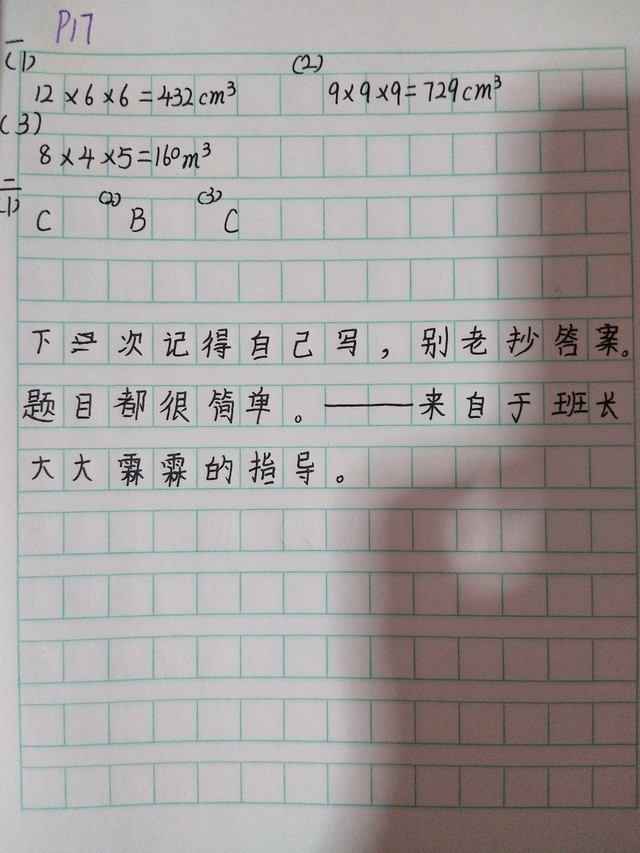 P17
一
(1) (2)
12×6×6=432cm³ 9×9×9=729cm³
(3)
8×4×5=160m³
二
(1) C (2) B (3) C
下次记得自己写，别老抄答案。
题目都很简单。——来自于班长
大大霖霖的指导。